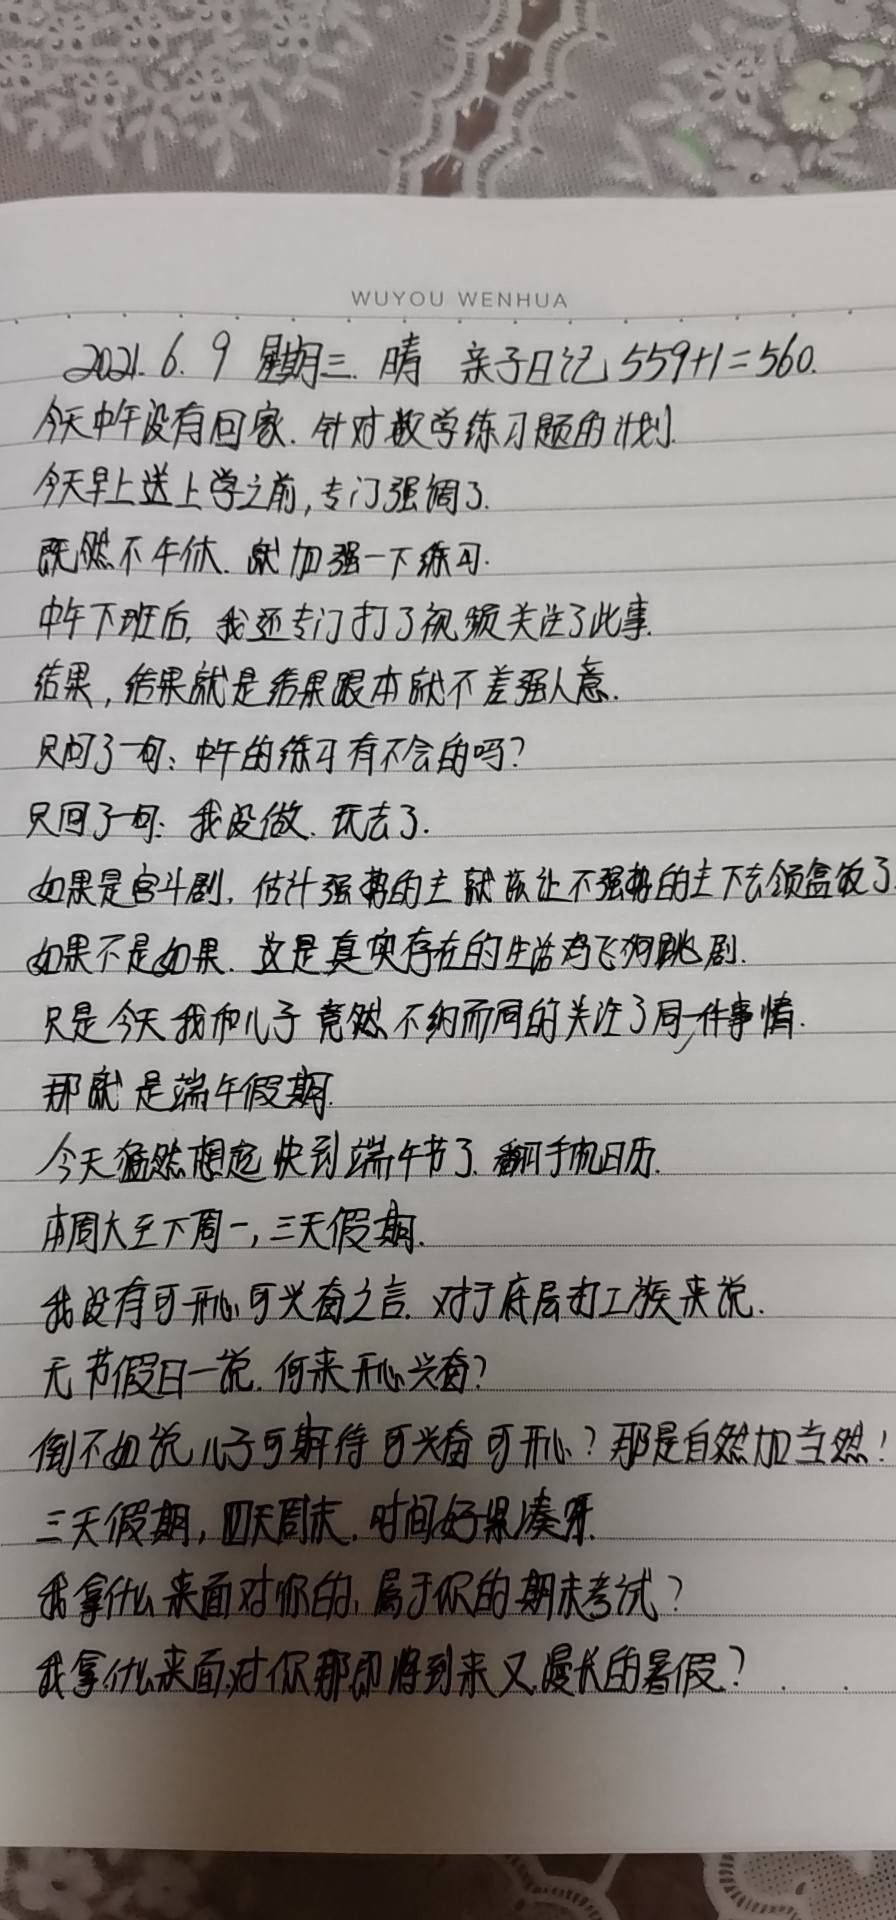 WUYOU WENHUA
2021. 6. 9 星期三. 晴 亲子日记 559+1=560.
今天中午没有回家. 针对数学练习题的计划.
今天早上送上学之前, 专门强调了.
既然不午休. 就加强一下练习.
中午下班后, 我还专门打了视频关注了此事.
结果, 结果就是结果跟本就不差强人意.
只问了一句: 中午的练习有不会的吗?
只回了一句: 我没做. 玩去了.
如果是宫斗剧. 估计强势的主就该让不强势的主下去领盒饭了.
如果不是如果. 这是真实存在的生活鸡飞狗跳剧.
只是今天我和儿子竟然不约而同的关注了同一件事情.
那就是端午假期.
今天猛然想起快到端午节了. 翻开手机日历.
本周六至下周一, 三天假期.
我没有可开心可兴奋之言. 对于底层打工族来说.
无节假日一说. 何来开心兴奋?
倒不如说儿子可期待可兴奋可开心? 那是自然加当然!
三天假期, 四天周末. 时间好紧凑呀.
我拿什么来面对你的, 属于你的期末考试?
我拿什么来面对你那即将到来又漫长的暑假?